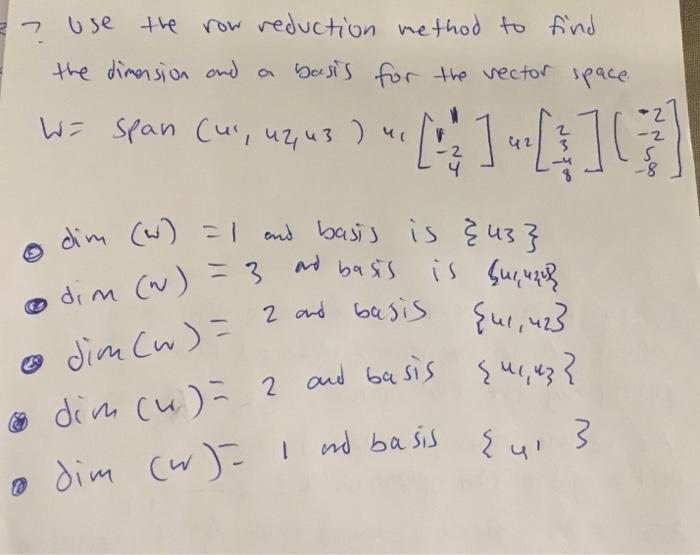 7 Use the row reduction method to find
the dimension and a basis for the vector space
W = span (u1, u2, u3) u1 [1 1 -2 4] u2 [2 3 -4 8] [-2 -2 5 -8]
dim (w) = 1 and basis is {u3}
dim (w) = 3 and basis is
dim (w) = 2 and basis {u1, u2}
dim (w) = 2 and basis {u1, u3}
dim (w) = 1 and basis {u1}